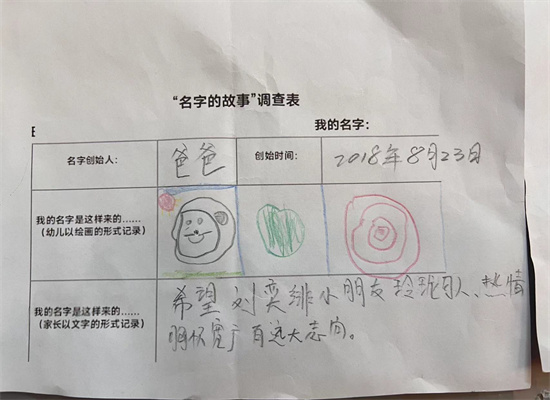 “名字的故事”调查表
我的名字：
名字创始人： 爸爸 创始时间： 2018年8月23日
我的名字是这样来的……
（幼儿以绘画的形式记录）
希望刘奕绯小朋友玲珑可人、热情
我的名字是这样来的……
（家长以文字的形式记录）
胸怀宽广有远大志向。